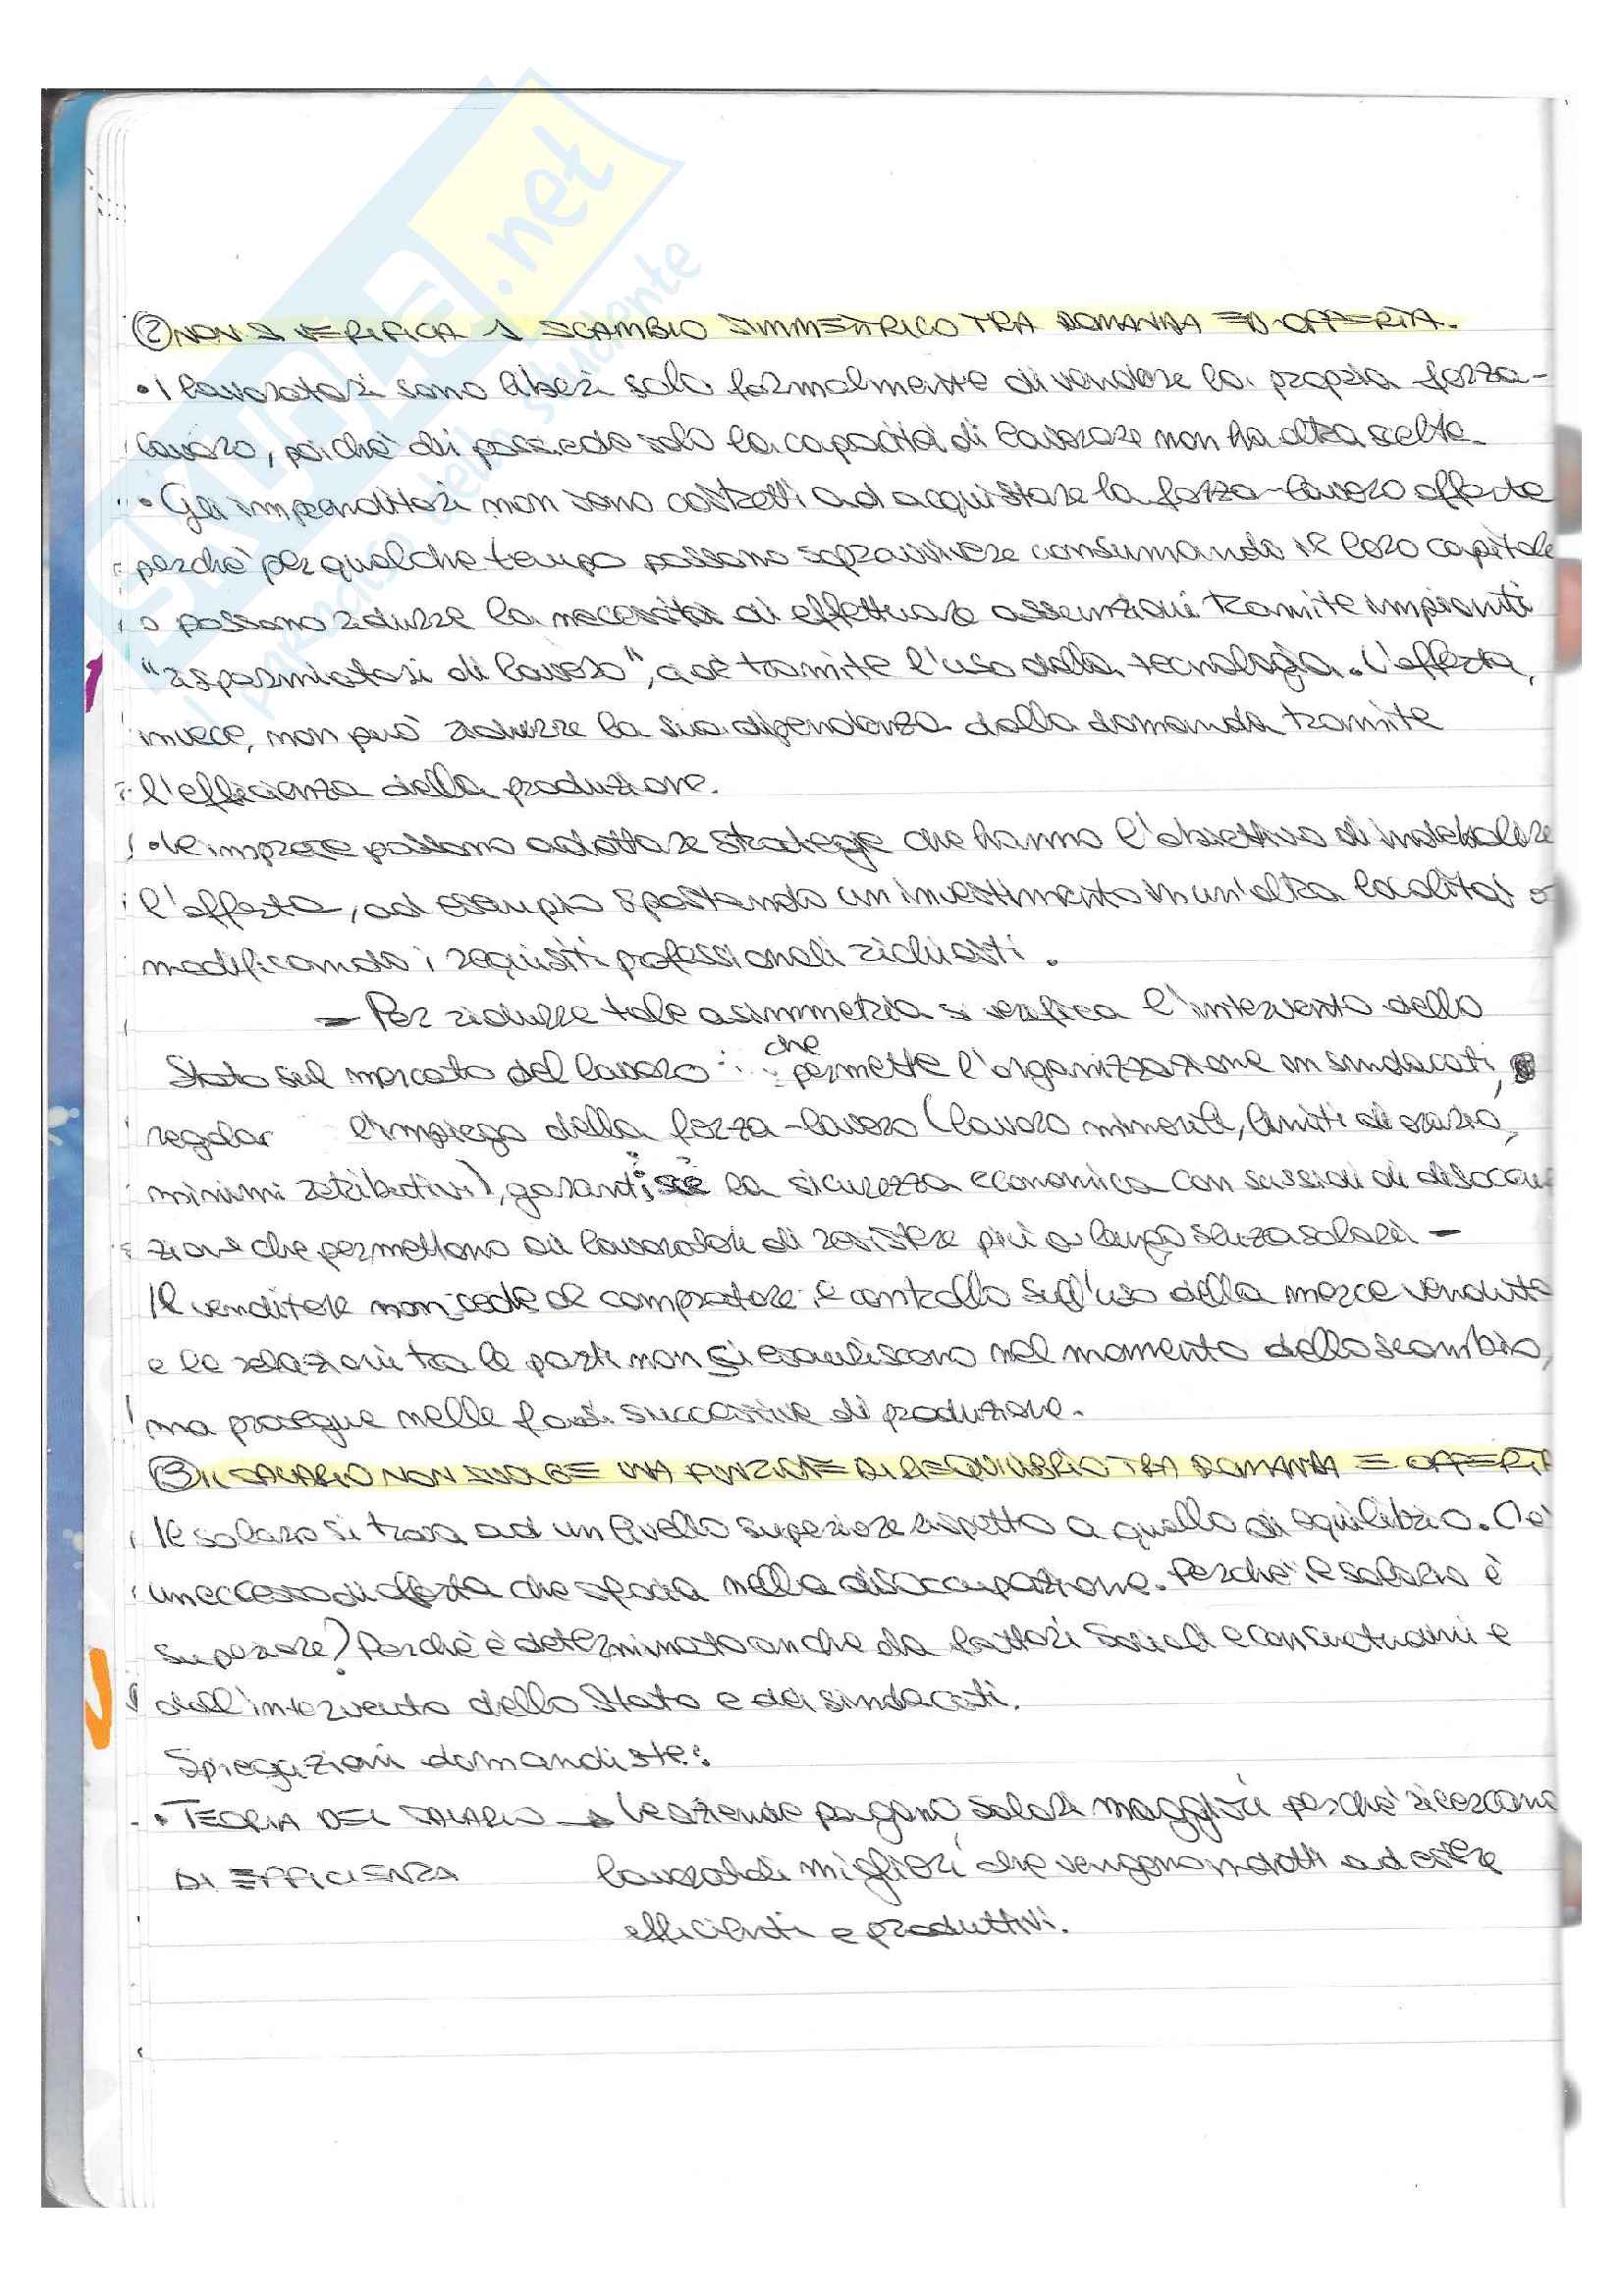 ② NON SI VERIFICA 1 SCAMBIO SIMMETRICO TRA DOMANDA ED OFFERTA.
• I lavoratori sono liberi solo formalmente di vendere la propria forza-
lavoro, poiché chi possiede solo la capacità di lavorare non ha altra scelta.
• Gli imprenditori non sono costretti ad acquistare la forza-lavoro offerta
perché per qualche tempo possono sopravvivere consumando il loro capitale
o possono ridurre la necessità di effettuare assunzioni tramite impianti
"risparmiatori di lavoro", cioè tramite l'uso della tecnologia. L'offerta,
invece, non può ridurre la sua dipendenza dalla domanda tramite
l'efficienza della produzione.
• Le imprese possono adottare strategie che hanno l'obiettivo di indebolire
l'offerta, ad esempio spostando un investimento in un'altra località o
modificando i requisiti professionali richiesti.
– Per ridurre tale asimmetria si verifica l'intervento dello
Stato sul mercato del lavoro: che permette l'organizzazione in sindacati,
regolar l'impiego della forza-lavoro (lavoro minorile, limiti di orario,
minimi retributivi), garantisce la sicurezza economica con sussidi di disoccu
zione che permettono ai lavoratori di resistere più a lungo senza salari –
Il venditore non cede al compratore il controllo sull'uso della merce venduta
e le relazioni tra le parti non si esauriscono nel momento dello scambio,
ma prosegue nelle fasi successive di produzione.
③ IL SALARIO NON SVOLGE UNA FUNZIONE DI RIEQUILIBRIO TRA DOMANDA E OFFERTA
Il salario si trova ad un livello superiore rispetto a quello di equilibrio. C'è
un eccesso di offerta che sfocia nella disoccupazione. Perché il salario è
superiore? Perché è determinato anche da fattori sociali e consuetudini e
dall'intervento dello Stato e dei sindacati.
Spiegazioni domandiste:
• TEORIA DEL SALARIO → Le aziende pagano salari maggiori perché ricercano
DI EFFICIENZA lavoratori migliori che vengono indotti ad essere
efficienti e produttivi.
.net